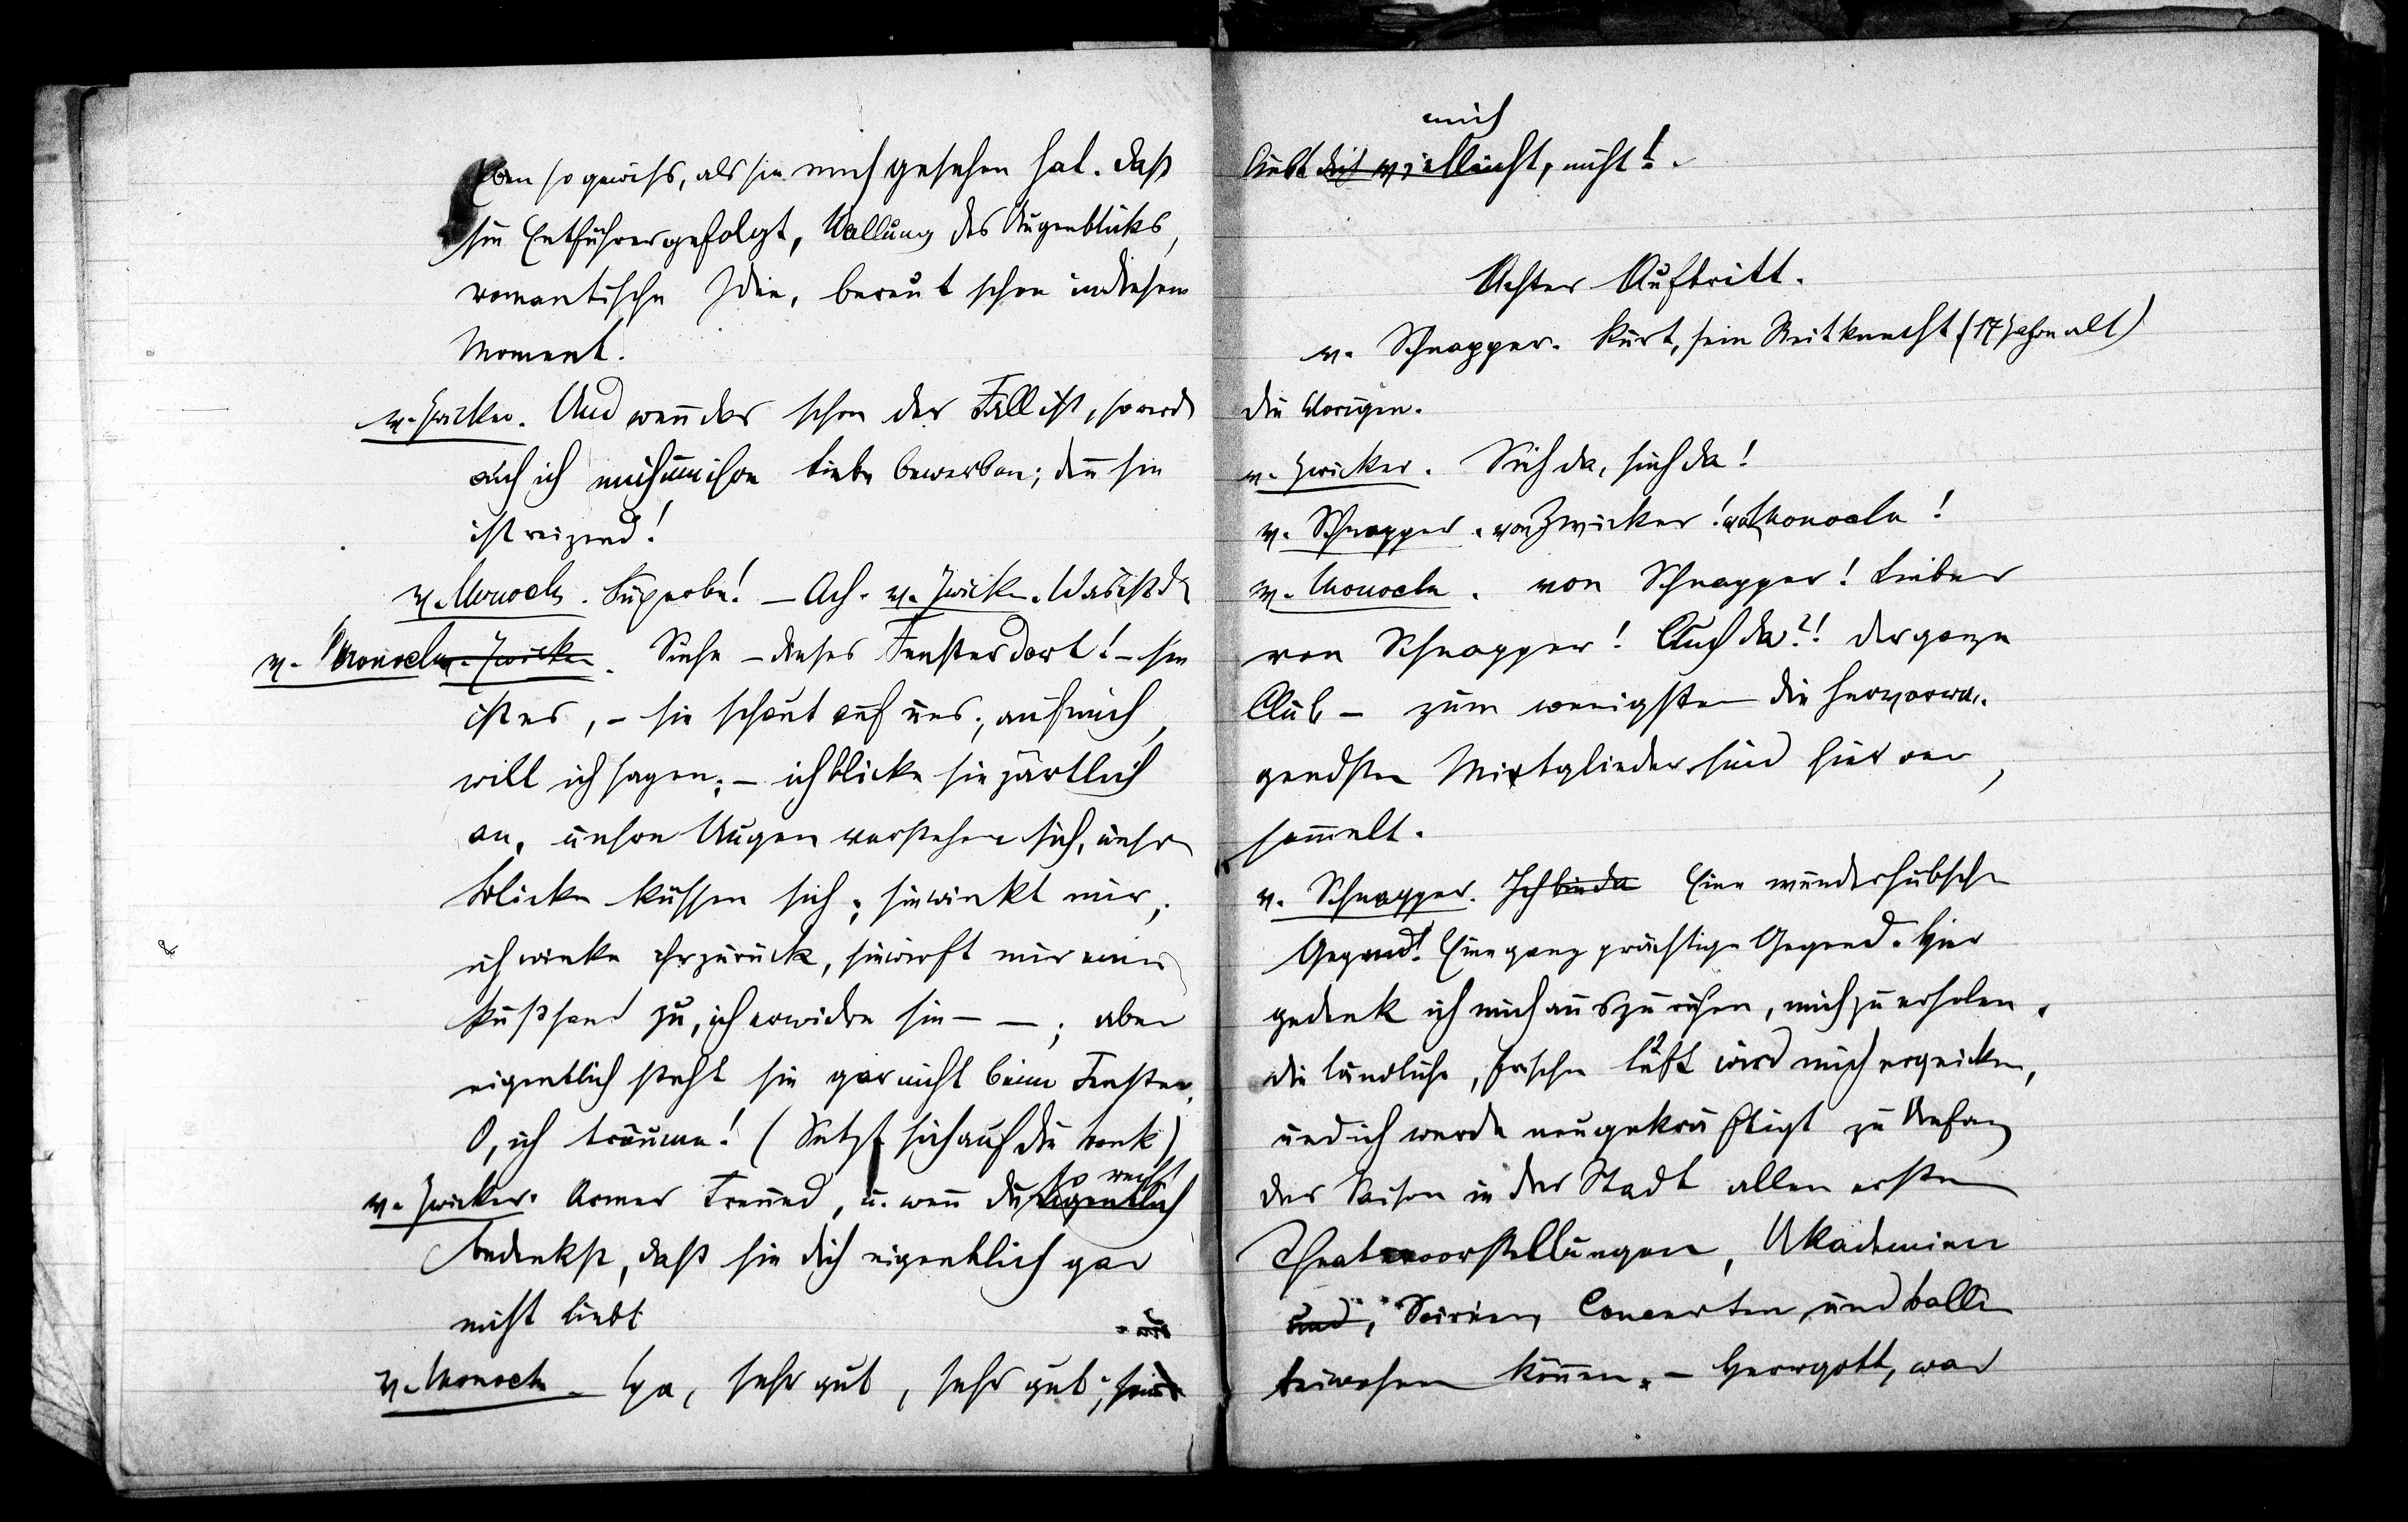 Eben so gewiss, als sie mich gesehen hat. Daß
sie Entführer gefolgt, Wallung des Augenblicks,
romantische Idee, bereut schon in diesem
Moment.
v. Zwicker. Und wenn das schon der Fall ist, so werde
auch ich mich um ihre Liebe bewerben; denn sie
ist reizend!
v. Monocle. Süperbe! — Ach. v. Zwicker. Was ist d
v. Monocle v. Zwicker. Siehe – dieses Fenster dort! – sie
ist es, – sie schaut auf uns; auf mich,
will ich sagen; – ich blicke sie zärtlich
an, unsere Augen verstehen sich, unsere
Blicke küssen sich; sie winkt mir,
ich winke ihr zurück, sie wirft mir eine
Kußhand zu, ich erwidre sie – –; aber
eigentlich steht sie gar nicht beim Fenster.
O, ich träume! (Setzt sich auf die Bank)
so recht
v. Zwicker. Armer Freund, u. wenn du eigentlich
bedenkst, daß sie dich eigentlich gar
nicht liebt
v. Monocle – Ha, sehr gut, sehr gut;
mich
liebt dich vielleicht, nicht!
Achter Auftritt.
v. Schnapper. Kurt, sein Reitknecht (17 Jahre alt)
die Vorigen.
v. Zwicker. Sieh da, sieh da!
v. Schnapper. von Zwicker! von Monocle!
v. Monocle. von Schnapper! Lieber
von Schnapper! Auch da?! der ganze
Club – zum wenigsten die hervorra-
gendsten Mitglieder sind hier ver
sammelt.
v. Schnapper. Ich bin da Eine wunderhübsche
Gegend! Eine ganz prächtige Gegend. Hier
gedenk ich mich auszuruhen, mich zu erholen.
die ländliche, frische Luft wird mich erquicken,
und ich werde neugekräftigt zu Anfang
der Saison in der Stadt allen ersten
Theatervorstellungen, Akademien
und, Soiréen, Concerten und Bälle
beiwohnen können. – Herrgott, war